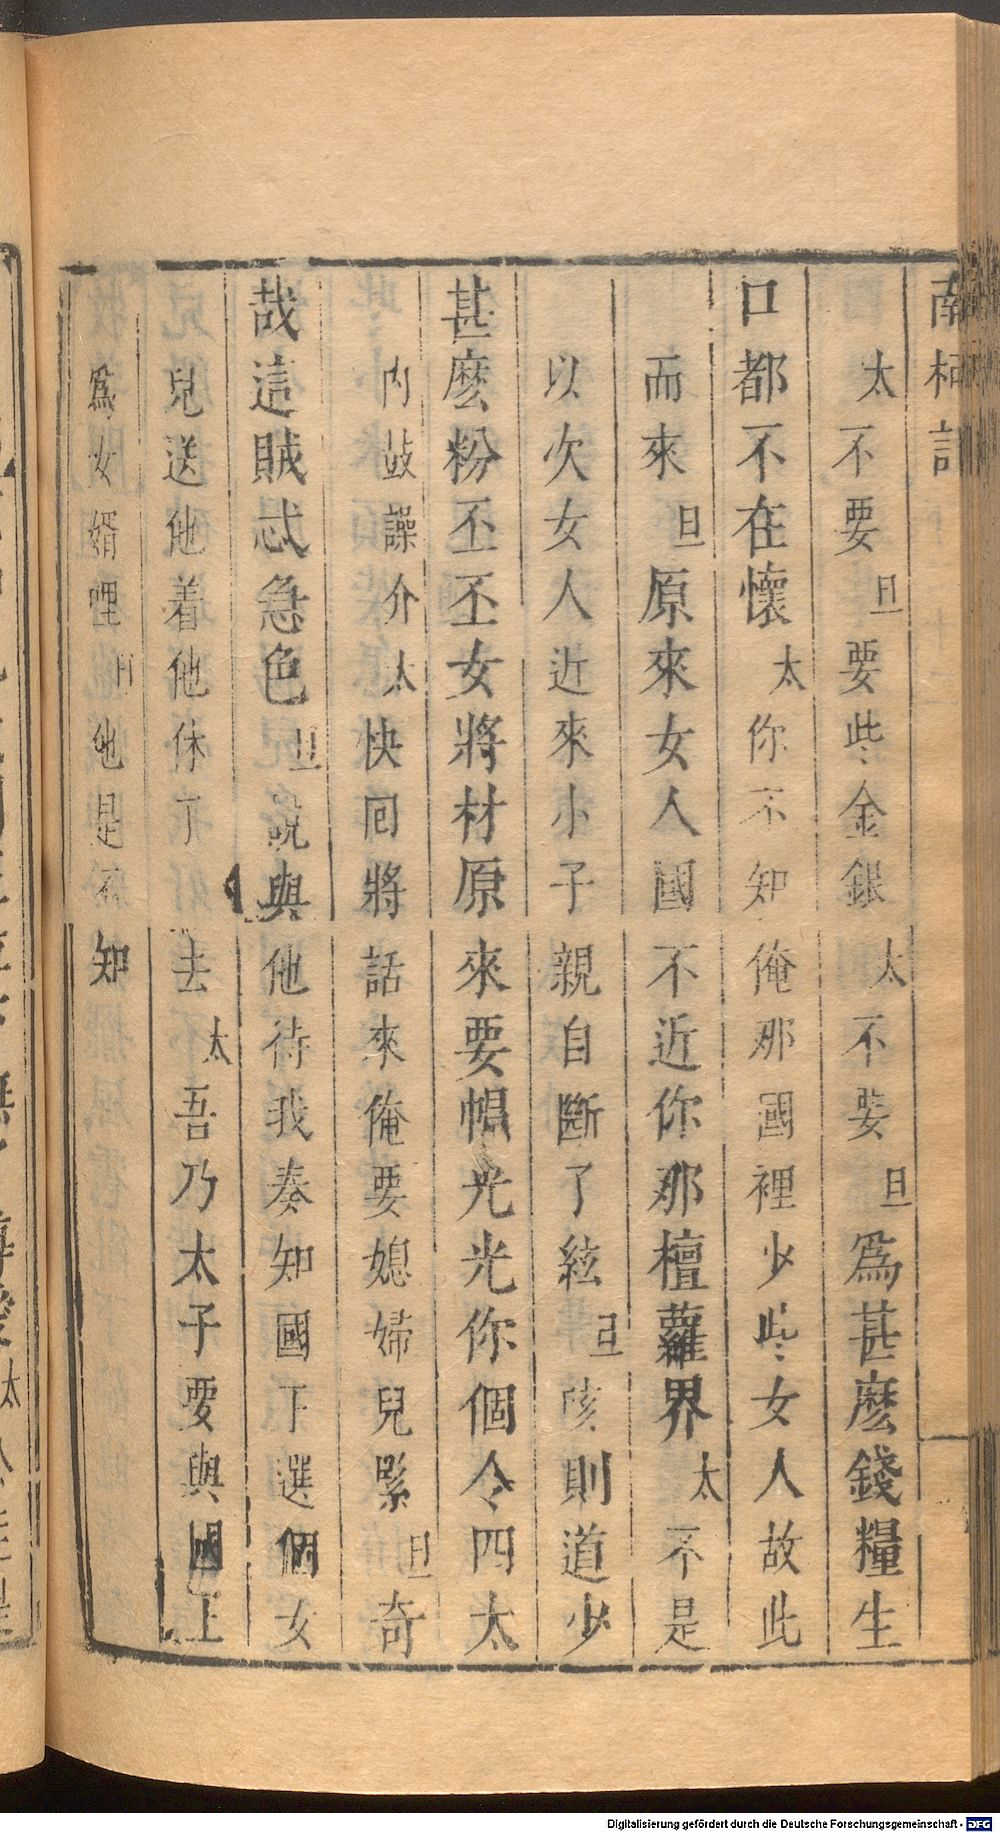 南柯記
太不要旦要些金銀太不要旦爲甚麽錢糧生
口都不在懷太你不知俺那國裡少些女人故此
而來旦原來女人國不近你那檀蘿界太不是
以次女人近來小子親自斷了絃旦咳則道少
甚麽粉丕丕女將材原來要帽光光你個令四太
內鼓譟介太快回將話來俺要媳婦兒緊旦奇
哉這賊忒急色旦説與他待我奏知國下選個女
兒送他着他休了去太吾乃太子要與國王
爲女婿哩旦他是不知
Digitalisierung gefördert durch die Deutsche Forschungsgemeinschaft - DFG